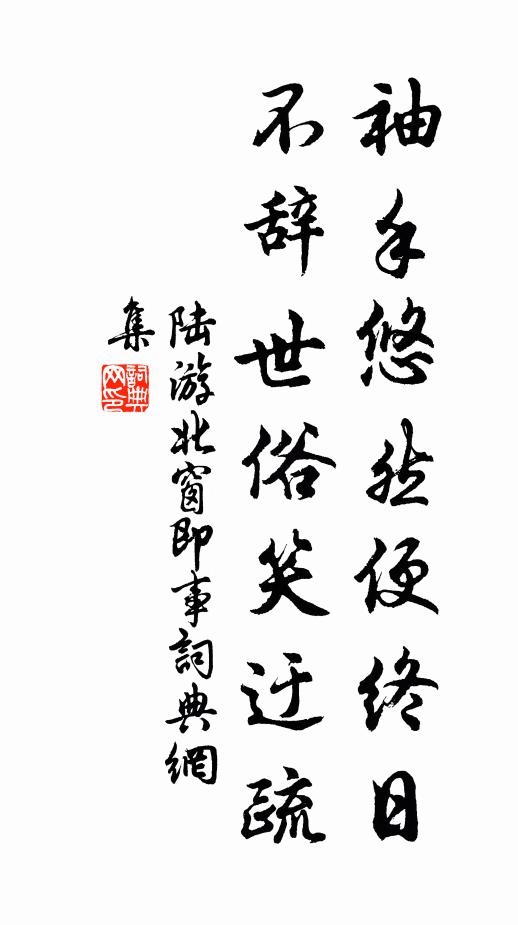 袖手悠然便终日
不辞世俗笑迂疏
陆游北窗即事詞典網
集
詞典网印